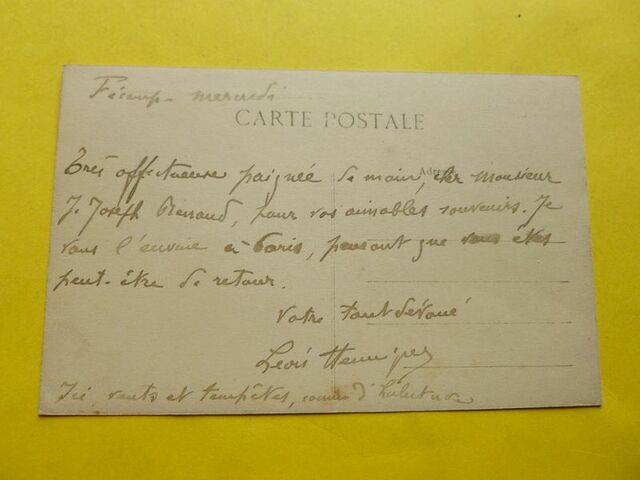 Fécamp - mercredi
CARTE POSTALE
Très affectueuse poignée de main, cher Monsieur
Adresse
J. Joseph Renaud, pour vos aimables souvenirs. Je
vous l'envoie à Paris, pensant que vous êtes
peut-être de retour.
Votre tout dévoué
Léon Hennique
Ici, vents et tempêtes, comme d'habitude